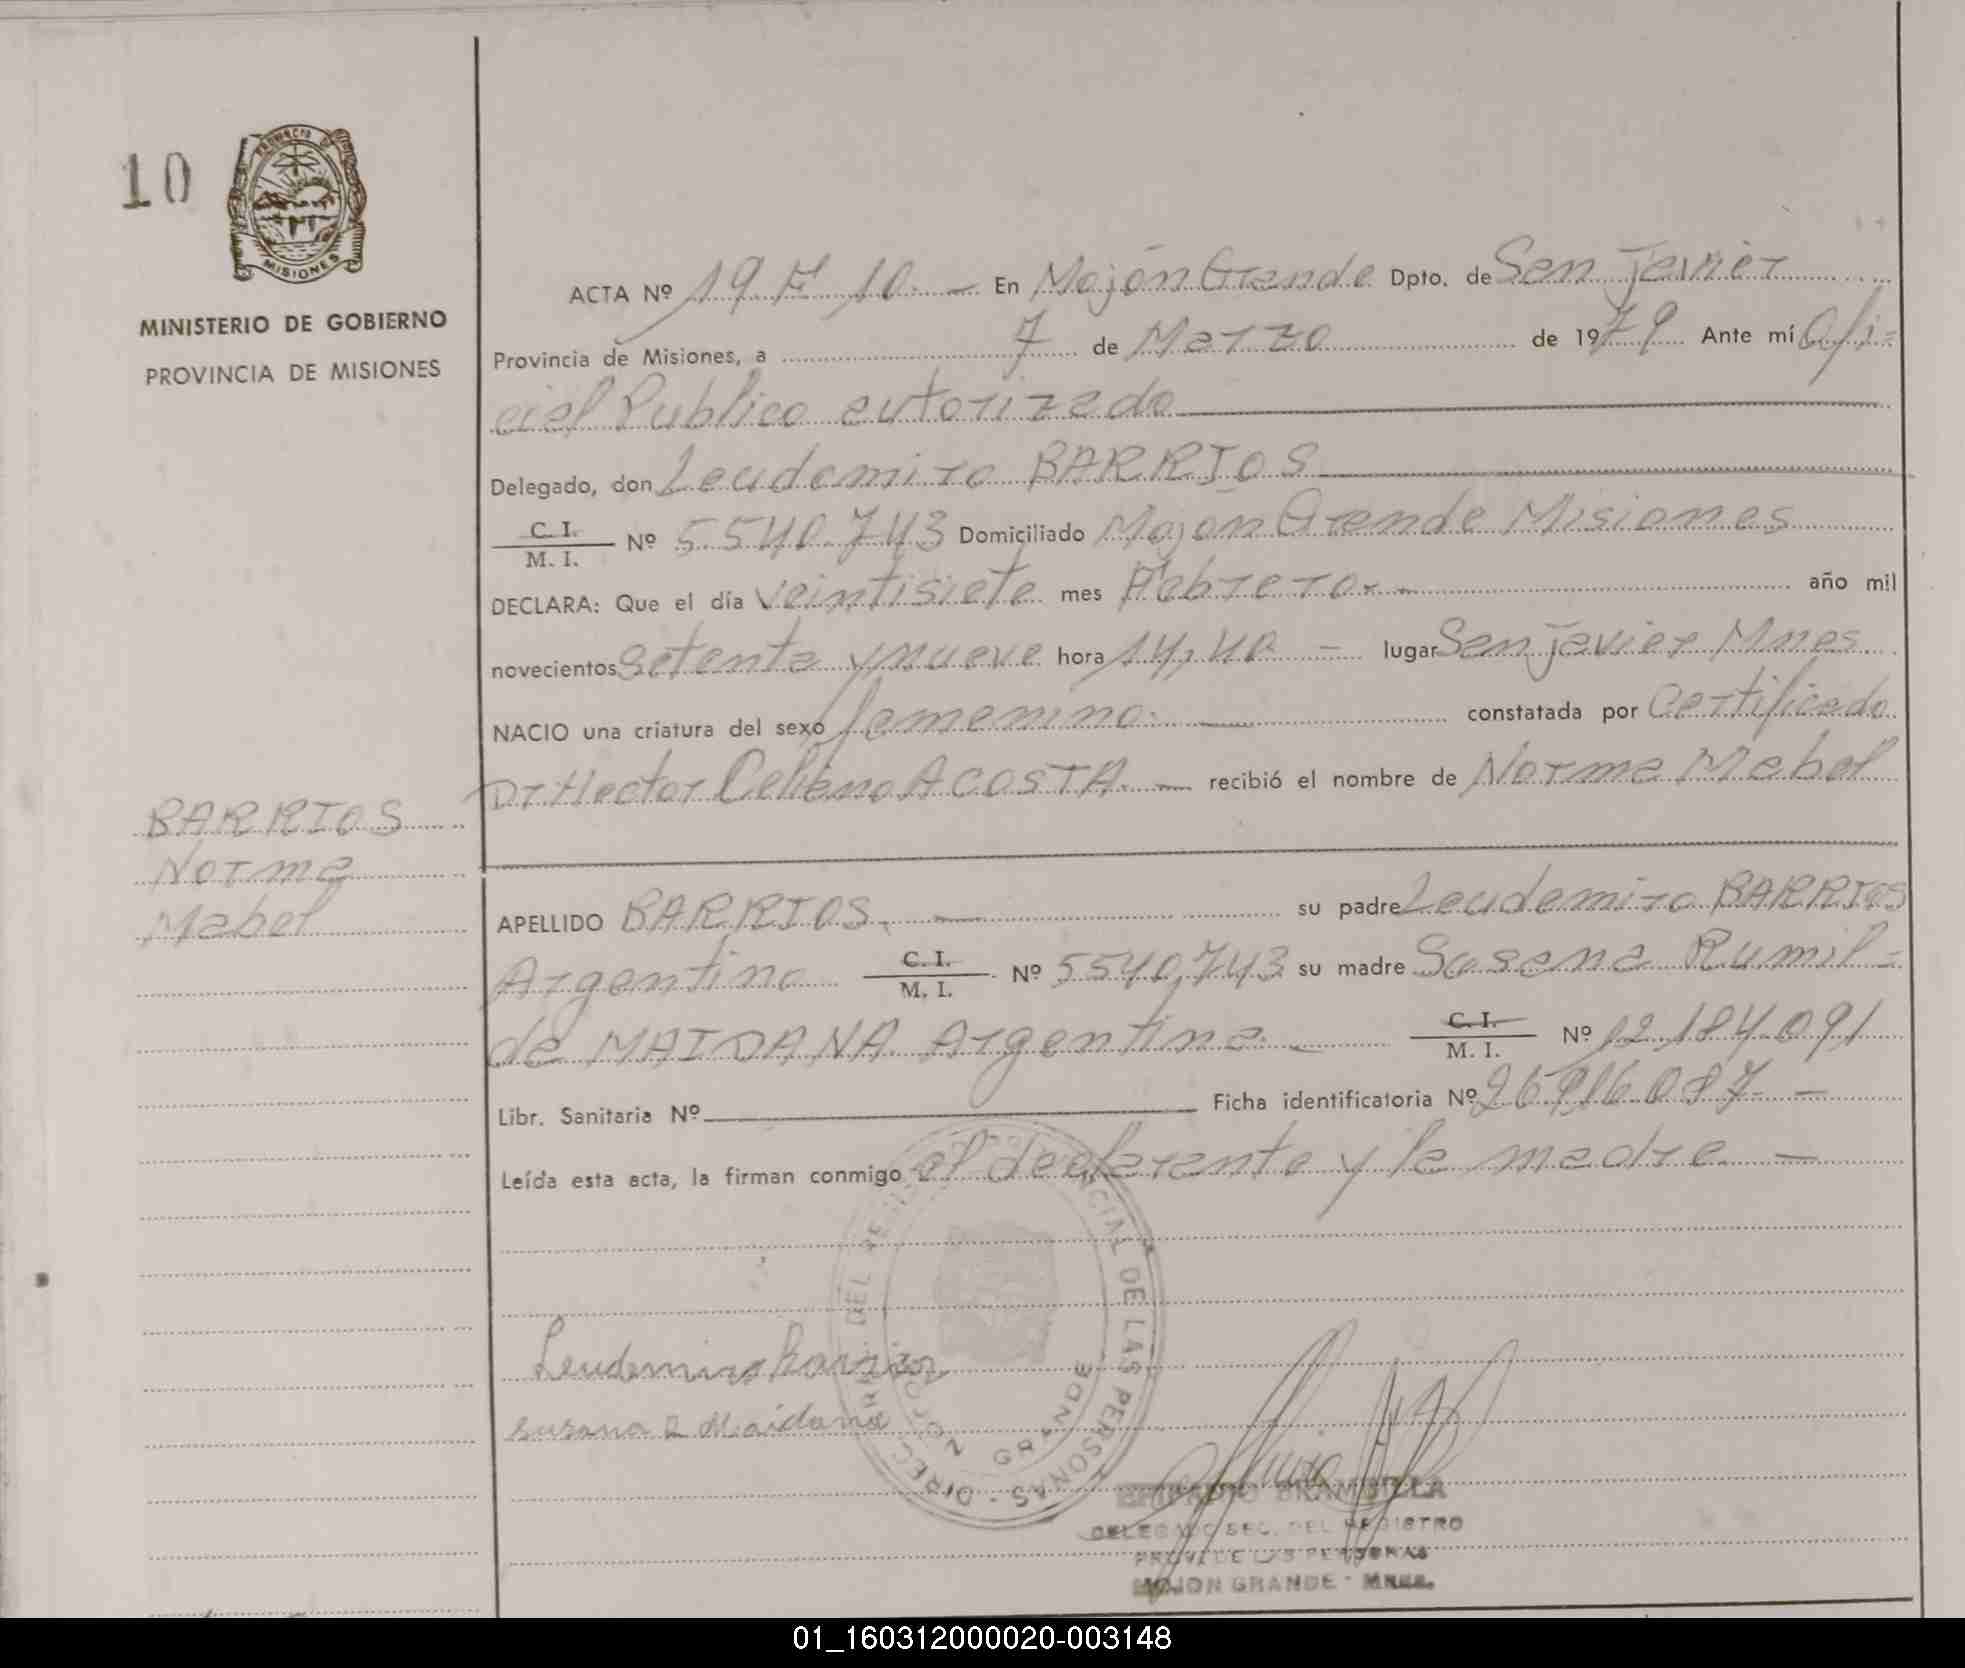 10
PROVINCIA DE
MISIONES
MINISTERIO DE GOBIERNO
PROVINCIA DE MISIONES
ACTA Nº 19 Fº 10. — En Mojón Grande Dpto. de San Javier
Provincia de Misiones, a 7 de Marzo de 1979 Ante mí Ofi=
cial Publico autorizado
Delegado, don Leudemiro BARRIOS
C. I.
M. I. Nº 5.540.743 Domiciliado Mojón Grande Misiones
DECLARA: Que el día veintisiete mes Febrero.- año mil
novecientos setenta y nueve hora 14,40 — lugar San Javier Mnes
NACIO una criatura del sexo femenino. — constatada por Certificado
Dr Hector Celieno ACOSTA. — recibió el nombre de Norma Mabel
BARRIOS
Norma
Mabel
APELLIDO BARRIOS. — su padre Leudemiro BARRIOS
Argentino C. I.
M. I. Nº 5540.743 su madre Susana Rumil=
da MAIDANA Argentina. — C. I.
M. I. Nº 12.184.091
Libr. Sanitaria Nº Ficha identificatoria Nº —
Leída esta acta, la firman conmigo el declarante y la madre. —
Leudemiro Barrios
Susana R Maidana
DIREC DEL RE PROVINCIAL DE LAS PERSONAS
GRANDE
BRAMBILLA
DELEGADO SEC. DEL REGISTRO
PROV. DE LAS PERSONAS
MOJON GRANDE - Mnes.
01_160312000020-003148